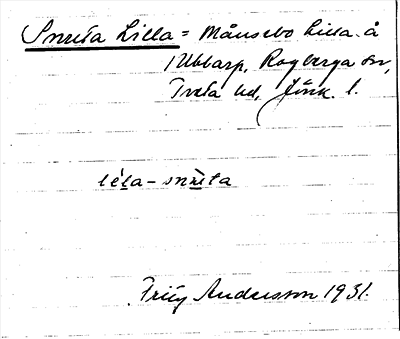 Snruta Lilla = Månsebo Lilla å
/Ubbarp, Rogberga sn,
Tveta hd, Jönk. l.
léla-snrùta
Fritz Andersson 1931.